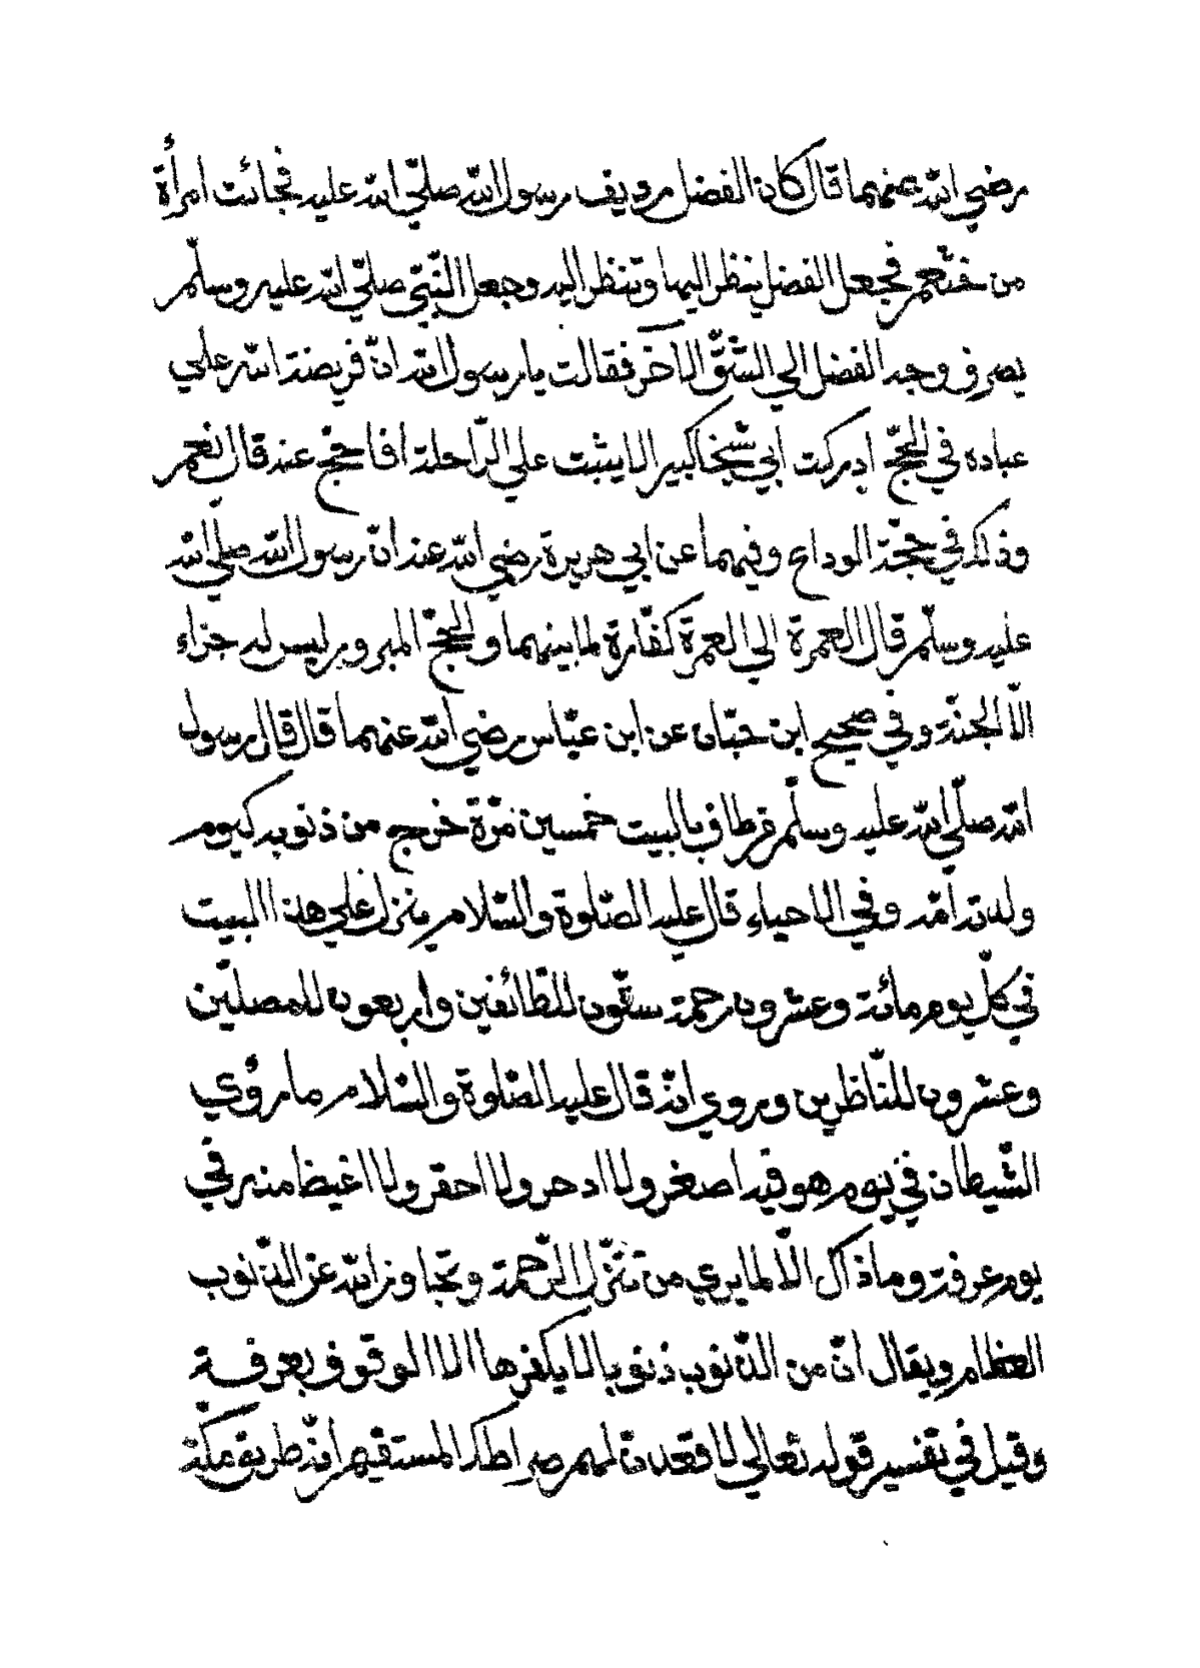 رضي الله عنهما قال كان الفضل رديف رسول الله صلّي الله عليه فجائت امرأة
من خثعم فجعل الفضل ينظر اليها وتنظر اليه وجعل النّبيّ صلّي الله عليه وسلّم
يصرف وجه الفضل الي الشّقّ الآخر فقالت يا رسول الله انّ فريضة الله علي
عباده في الحجّ ادركت ابي شيخا كبيرا لا يثبت علي الرّاحلة افاحجّ عنه قال نعم
وذلك في حجّة الوداع وفيهما عن ابي هريرة رضي الله عنه انّ رسول الله صلّي الله
عليه وسلّم قال العمرة الي العمرة كفّارة لما بينهما والحجّ المبرور ليس له جزاء
الّا الجنّة وفي صحيح ابن حبّان عن ابن عبّاس رضي الله عنهما قال قال رسول
الله صلّي الله عليه وسلّم من طاف بالبيت خمسين مرّة خرج من ذنوبه كيوم
ولدته امّه وفي الاحياء قال عليه الصّلوة والسّلام ينزل علي هذا البيت
في كلّ يوم مائة وعشرون رحمة ستّون للطّائفين واربعون للمصلّين
وعشرون للنّاظرين وروي انّه قال عليه الصّلوة والسّلام ما رؤي
الشّيطان في يوم هو فيه اصغر ولا ادحر ولا احقر ولا اغيظ منه في
يوم عرفة وما ذاك الّا لما يري من تنزّل الرّحمة وتجاوز الله عن الذّنوب
العظام ويقال انّ من الذّنوب ذنوبا لا يكفرها الا الوقوف بعرفة
وقيل في تفسير قوله تعالي لاقعدن لهم صراطك المستقيم انّه طريق مكّة